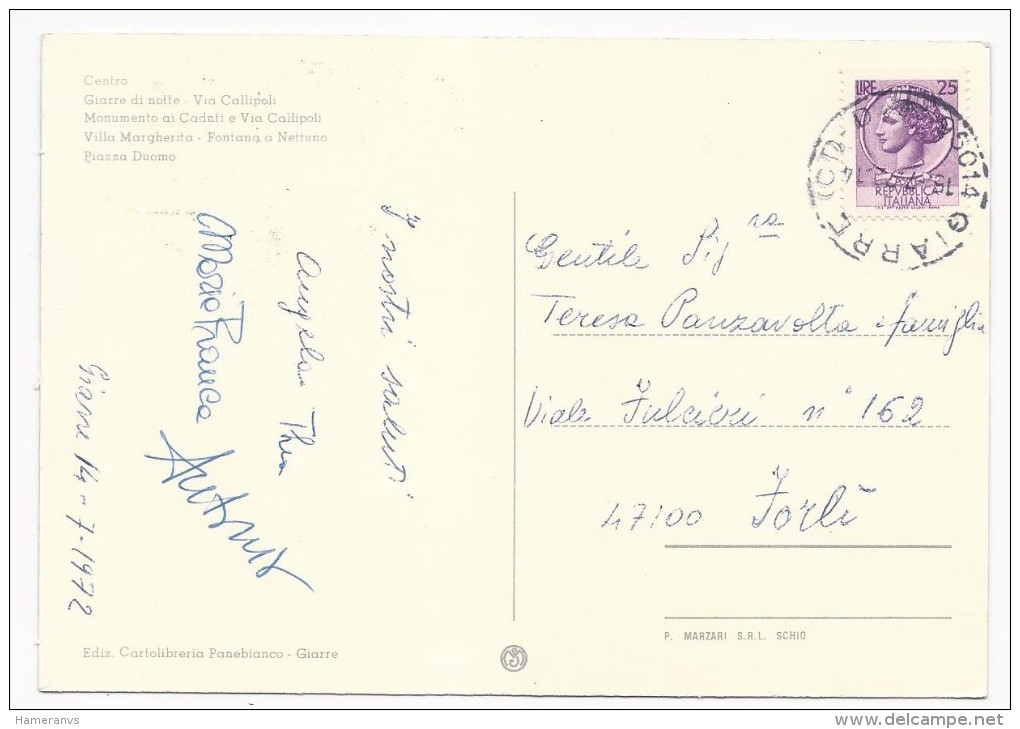 Centro
Giarre di notte - Via Callipoli
Monumento ai Caduti e Via Callipoli
Villa Margherita - Fontana a Nettuno
Piazza Duomo
I nostri saluti
Angela
Maria Franca
Giarre 14-7-1972
Ediz. Cartolibreria Panebianco - Giarre
LIRE 25
REPVBBLICA
ITALIANA
95014 GIARRE (CT)
Gentile Sig ra
Teresa Panzavolta e famiglia
Viale Fulcieri n° 162
47100 Forlì
P. MARZARI S.R.L. SCHIO
Hameranvs
www.delcampe.net